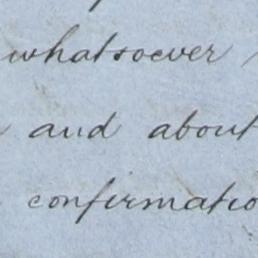 whatsoever
and about
confirmatio